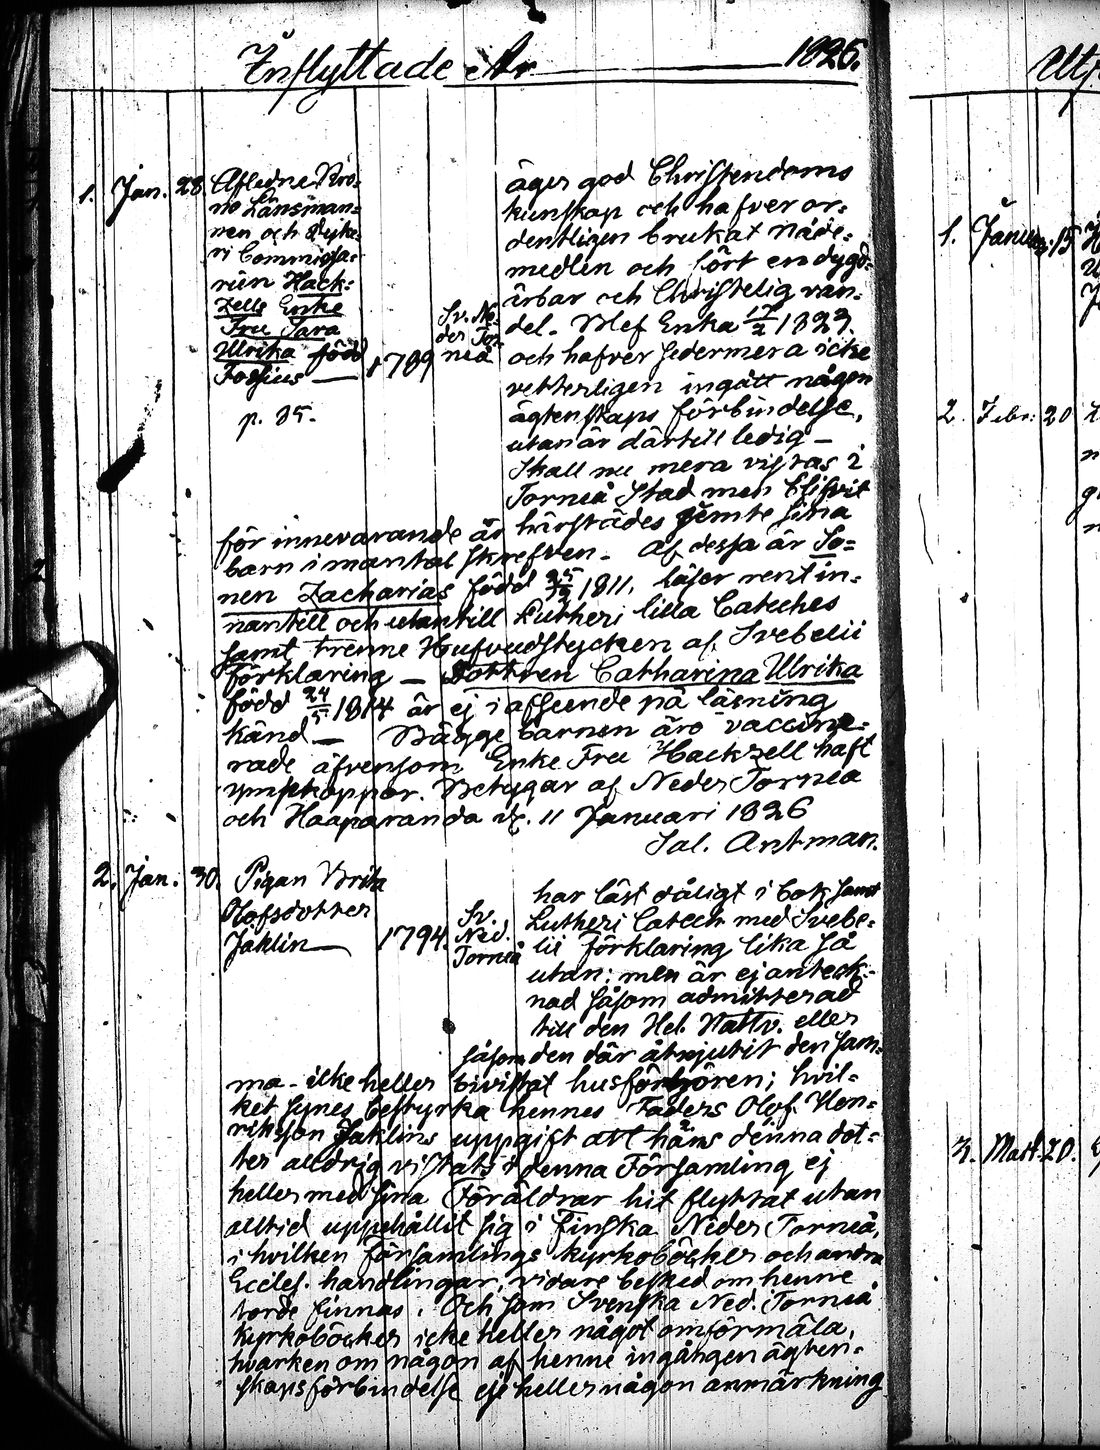 Inflyttade År 1826.
1. Jan. 28. Afledne Kro=
no Länsman=
nen och
ri Commissa=
rien Hack=
zells Enka
Fru Sara
Ulrika född
Fossius — 1789 Sv. Ne=
der Tor=
neå
p. 85.
äger god Christendoms
kunskap och hafver or=
dentligen brukat Nåde=
medlen och fört en dygd=
ärbar och Christelig van=
del. Blef Enka 17/2 1823.
och hafver sedermera icke
vetterligen ingått någon
ägtenskaps förbindelse,
utan är därtill ledig —
Skall nu mera vistas i
Torneå Stad men blifvit
för innevarande år härstädes jemte sina
barn i mantal skrefven. Af dessa är So=
nen Zacharias född 1811, läser rent in=
nantill och utantill Lutheri lilla Cateches
samt trenne Hufvudstycken af Svebelii
förklaring — Dottren Catharina Ulrika
född 24/5 1814 är ej i afseende på läsning
känd — Bägge barnen äro vaccine=
rade äfvensom Enke Fru Hackzell haft
ympkoppor. Betygar af Neder Torneå
och Haaparanda d. 11 Januari 1826
Sal. Antman.
2. Jan. 30. Pigan Brita
Olofsdotter
Jaklin — 1794. Sv.
Ned.
Torneå
har läst dåligt i bok samt
Lutheri Catech med Svebe=
lii förklaring lika så
utan; men är ej anteck=
nad såsom admitterad
till den Hel. Nattv. eller
såsom den där åtnjutit den sam=
ma - icke heller bivistat husförhören; hvil=
ket synes bestyrka hennes Faders Olof Hen=
riksson Jaklins uppgift att hans denna dot=
ter alldrig vistats i denna Församling ej
heller med sina Föräldrar hit flyttat utan
alltid uppehållit sig i Finska Neder Torneå,
i hvilken Församlings kyrkoböcker och andra
Eccles. handlingar, vidare besked om henne
torde finnas. Och som Svenska Ned. Torneå
kyrkoböcker icke heller något omförmäla,
hvarken om någon af henne ingången ägten=
skapsförbindelse eje heller någon anmärkning
1. Januar. 15
2. Febr: 20
3. Mart. 20.